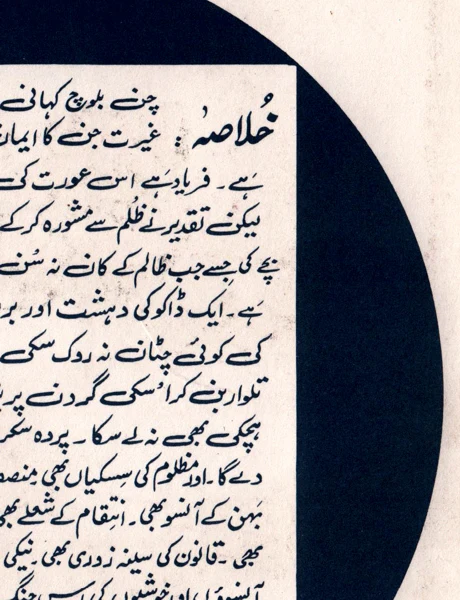 خُلاصہ:
چن بلوچ کہانی
غیرت جن کا ایمان
ہے۔ فریاد ہے اس عورت کی
لیکن تقدیر نے ظُلم سے مشورہ کر کے
بچے کی جسے جب ظالم کے کان نہ سُن
ہے۔ ایک ڈاکو کی دہشت اور بر
کی کوئی چٹان نہ روک سکی
تلوار بن کر اُسکی گردن پر
ہچکی بھی نہ لے سکا۔ پردہ سکر
دے گا۔ اور مظلوم کی سسکیاں بھی منصف
بہن کے آنسو بھی۔ انتقام کے شعلے بھی
بھی۔ قانون کی سینہ زوری بھی۔ نیکی
آنسوؤں اور خوشیوں کی اس جنگ